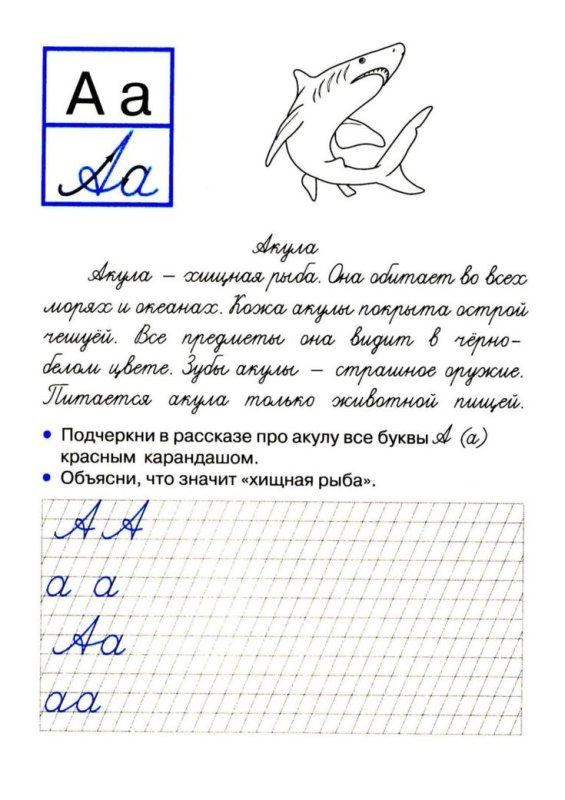 А а
Аа
Акула
Акула – хищная рыба. Она обитает во всех
морях и океанах. Кожа акулы покрыта острой
чешуёй. Все предметы она видит в чёрно-
белом цвете. Зубы акулы – страшное оружие.
Питается акула только животной пищей.
• Подчеркни в рассказе про акулу все буквы А (а)
красным карандашом.
• Объясни, что значит «хищная рыба».
А А
а а
Аа
аа